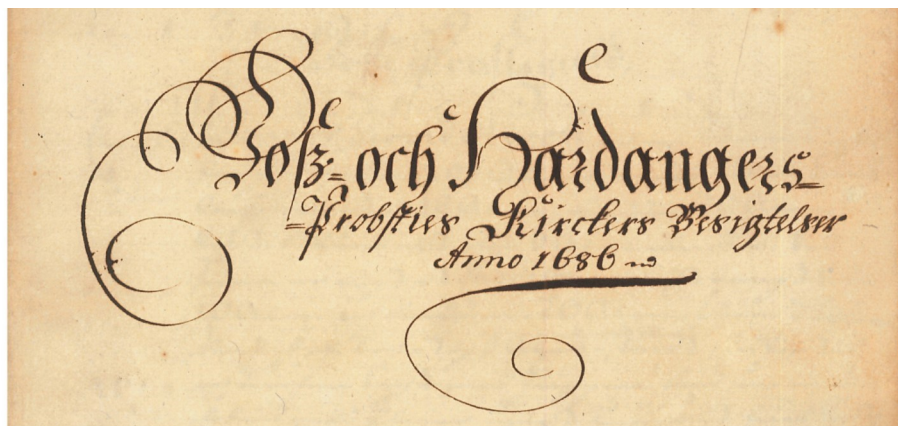 Vosz- och Hardangers-
Probsties Kirckers Besigtelser
Anno 1686